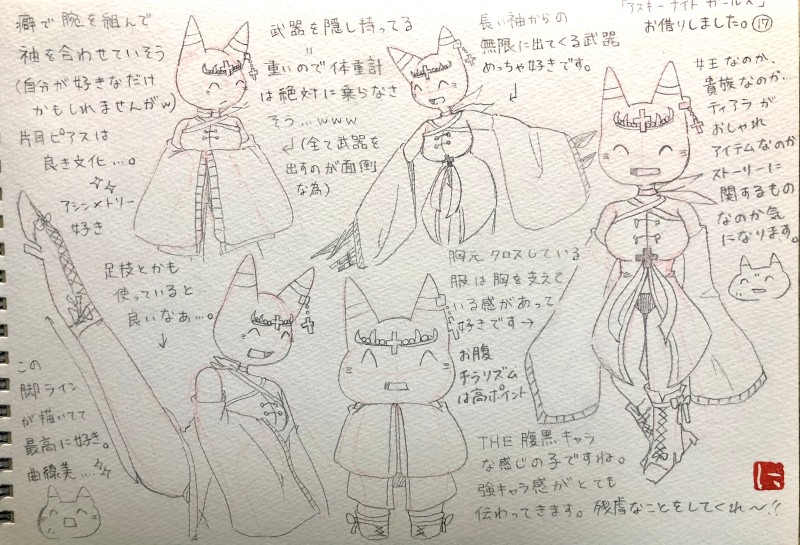 癖で腕を組んで
袖を合わせていそう
(自分が好きなだけ
かもしれませんがw)
片耳ピアスは
良き文化…。
アシンメトリー
好き
武器を隠し持ってる
重いので体重計
は絶対に乗らなさ
そう…www
(全て武器を
出すのが面倒
な為)
長い袖からの
無限に出てくる武器
めっちゃ好きです。
「アスキーナイトガールズ」
お借りしました。⑰
女王なのか、
貴族なのか…
ティアラが
おしゃれ
アイテムなのか
ストーリーに
関するもの
なのか気
になります。
足技とかも
使っていると
良いなぁ…。
この
脚ライン
が描いてて
最高に好き。
曲線美……
胸元クロスしている
服は胸を支えて
いる感があって
好きです→
お腹
チラリズム
は高ポイント
THE腹黒キャラ
な感じの子ですね。
強キャラ感がとても
伝わってきます。残虐なことをしてくれ〜!!
に